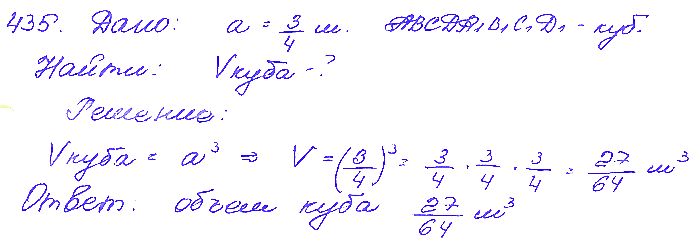 435. Дано: a = 3/4 м. ABCDA₁B₁C₁D₁ - куб.
Найти: Vкуба - ?
Решение:
Vкуба = a³ ⇒ V = (3/4)³ = 3/4 · 3/4 · 3/4 = 27/64 м³
Ответ. объем куба 27/64 м³